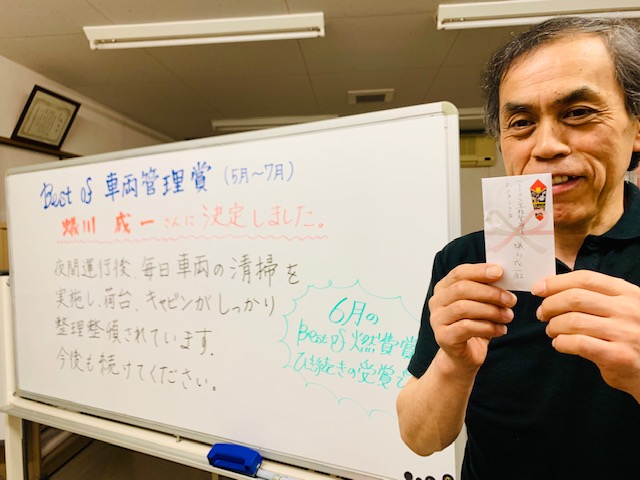 Best of 車両管理賞 (5月〜7月)
蜷川 成一 さんに決定しました。
夜間運行後、毎日車両の清掃を
実施し、荷台、キャビンがしっかり
整理整頓されています.
今後も続けてください。
6月の
Best of 燃費賞
ひき続きの受賞で